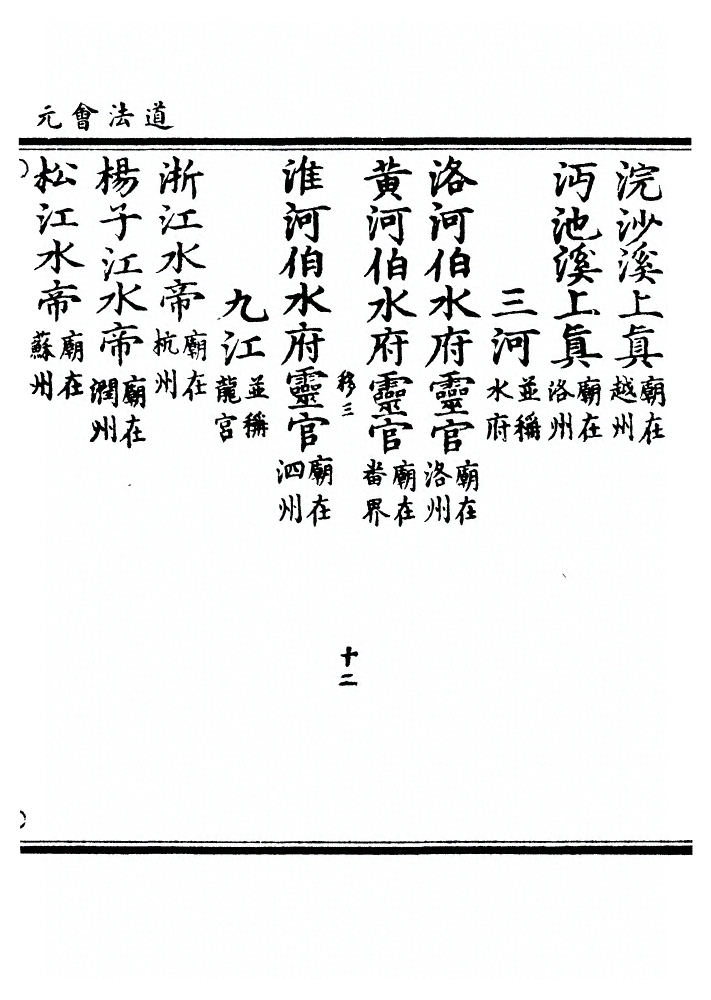 道法會元
浣沙溪上真廟在越州
沔池溪上真廟在洛州
三河並稱水府
洛河伯水府靈官廟在洛州
黃河伯水府靈官廟在畨界
移三
十二
淮河伯水府靈官廟在泗州
九江並稱龍宮
浙江水帝廟在杭州
楊子江水帝廟在潤州
松江水帝廟在蘇州